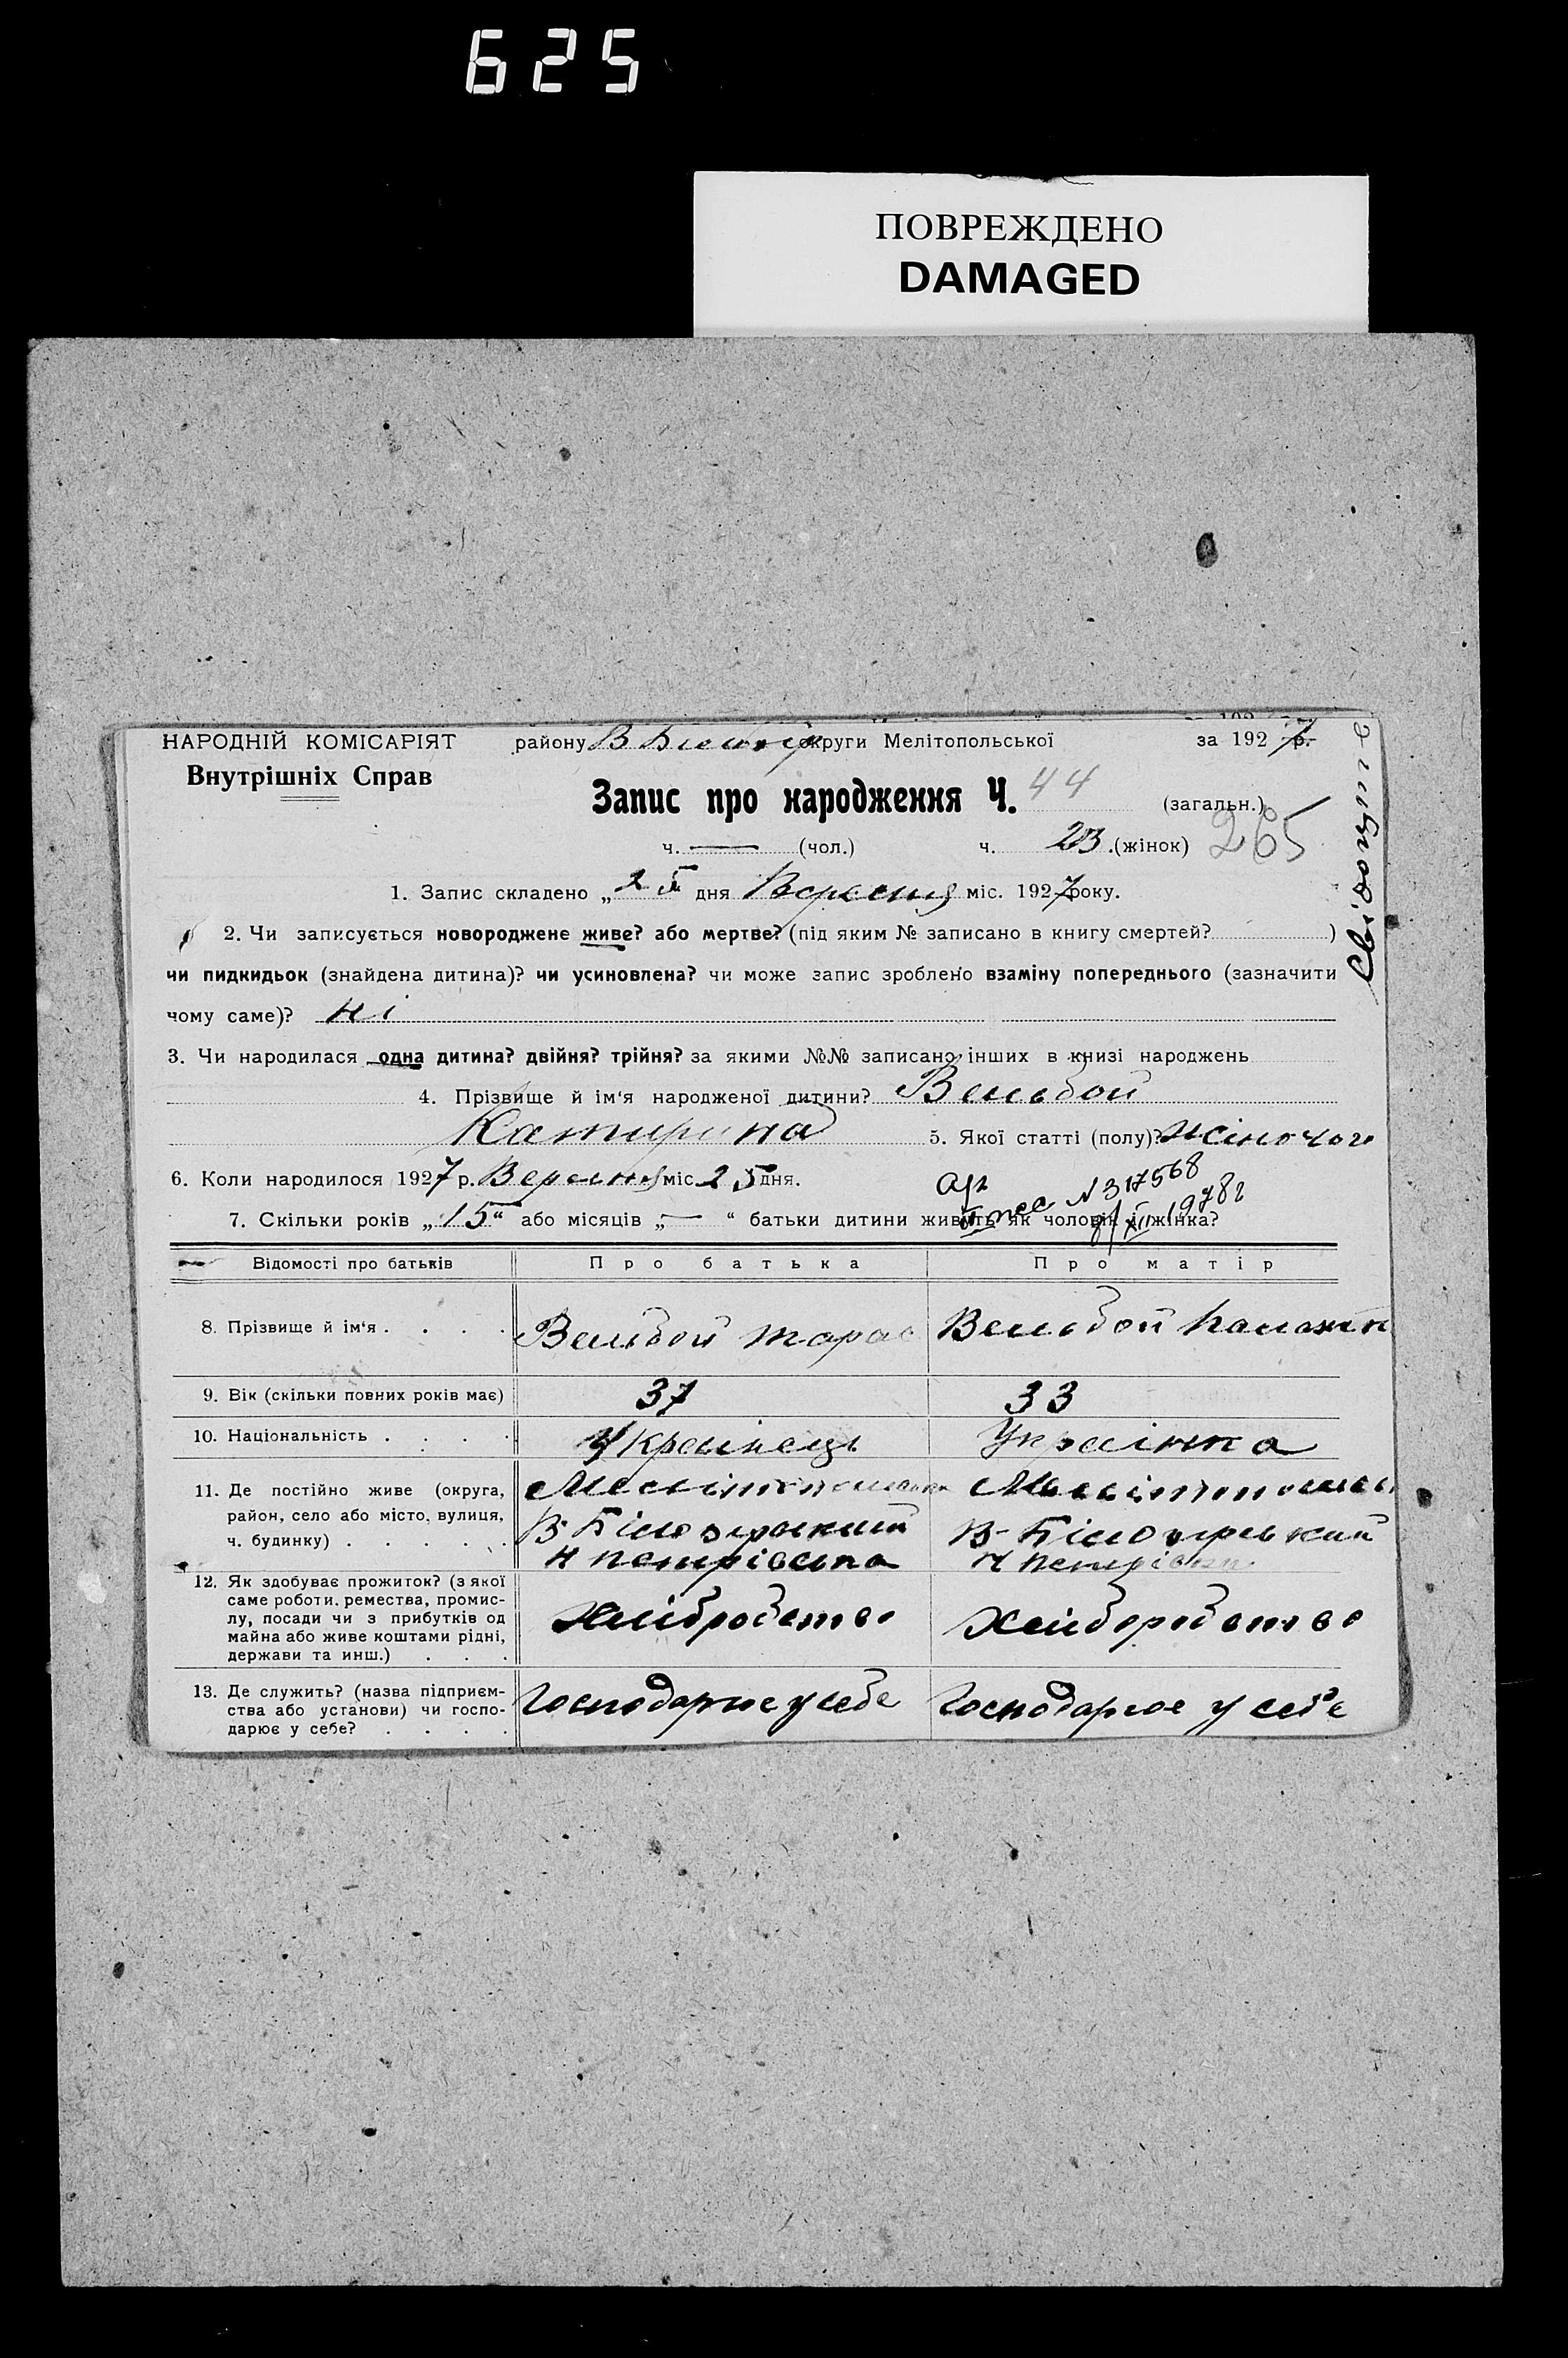 625
ПОВРЕЖДЕНО
DAMAGED
НАРОДНІЙ КОМІСАРІЯТ
Внутрішніх Справ
району В Білозер округи Мелітопольської за 1927 р.
Запис про народження Ч. 44 (загальн.)
ч. — (чол.) ч. 23 (жінок) 265
1. Запис складено „25 дня Вересня міс. 1927 року.
2. Чи записується новороджене живе? або мертве? (під яким № записано в книгу смертей? )
чи пидкидьок (знайдена дитина)? чи усиновлена? чи може запис зроблено взаміну попереднього (зазначити
чому саме)? Ні
3. Чи народилася одна дитина? двійня? трійня? за якими №№ записано інших в книзі народжень
4. Прізвище й ім'я народженої дитини? Вельбой
Катирина 5. Якої статті (полу)? жіночого
6. Коли народилося 1927 р. Вересня міс 25 дня.
N 317568
XII 1978г
7. Скільки років „15“ або місяців „—“ батьки дитини живуть як чоловік і жінка?
Відомості про батьків Про батька Про матір
8. Прізвище й ім'я . . . . Вельбой Тарас Вельбой
9. Вік (скільки повних років має) 37 33
10. Національність . . . . Українець Українка
11. Де постійно живе (округа,
район, село або місто, вулиця,
ч. будинку) . . . . .
В-Білозерський
Н Петрівска
В-Білозерський
Н Петрівка
12. Як здобуває прожиток? (з якої
саме роботи, ремества, промис-
лу, посади чи з прибутків од
майна або живе коштами рідні,
держави та инш.) . . .
Хлібробство Хліборобство
13. Де служить? (назва підприєм-
ства або установи) чи госпо-
дарює у себе? . . . .
Господарює у себе Господарює у себе